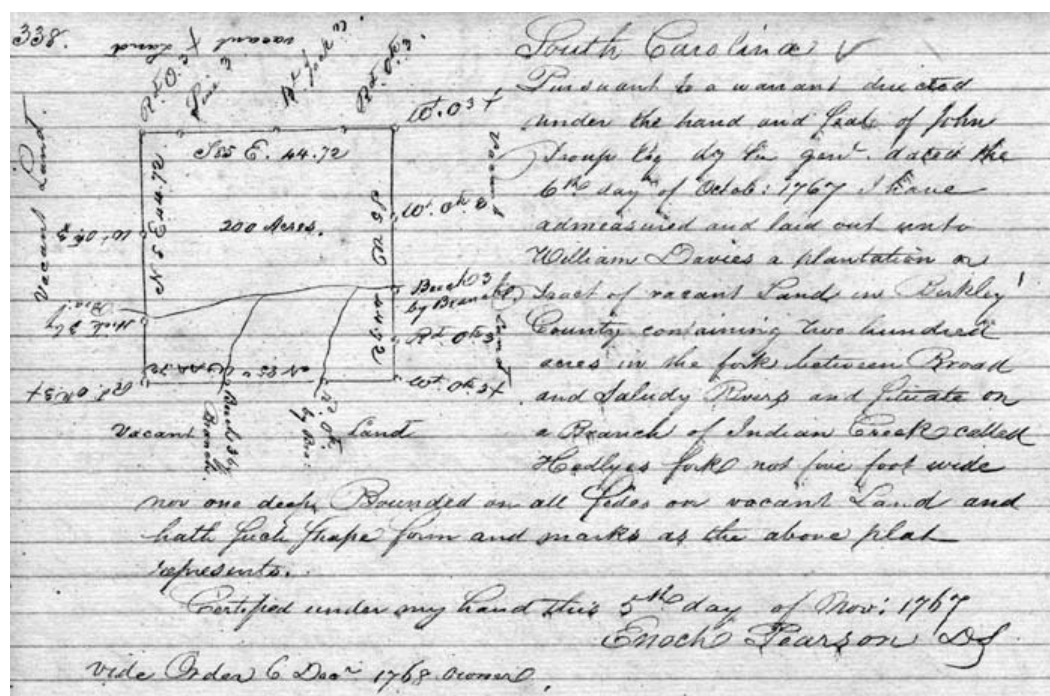 338.
vacant Land
Rd O. 3
Pine 3
Bk Jack
Rd Ok 3.
Wt. O 3 X
Vacant Land.
S 85 E. 44.72
N 5 E 44.72
200 Acres.
S 5 W 44.72
Wt. Ok 3
Wt. Ok 3
Vacant Land
Beech 3
by Branch
Hick 3 by
Bra:
Rd Ok 3
N 85 W 44.72
Rd. O K 3 X
Wt. Ok 3 X
Beech 3 by
Branch.
Ok.
by Bra:
Vacant Land
South Carolina
Pursuant to a warrant directed
under the hand and Seal of John
Troup Esq dy Sur genl. dated the
6th day of Octob: 1767 I have
admeasured and laid out unto
William Davies a plantation or
Tract of vacant Land in Berkley
County containing two hundred
acres in the fork between Broad
and Saludy Rivers and Situate on
a Branch of Indian Creek called
fork not five foot wide
nor one deep Bounded on all Sides on vacant Land and
hath Such Shape form and marks as the above plat
represents.
Certified under my hand this 5th day of Nov: 1767
Enoch Pearson DS
vide Order 6 Decr 1768